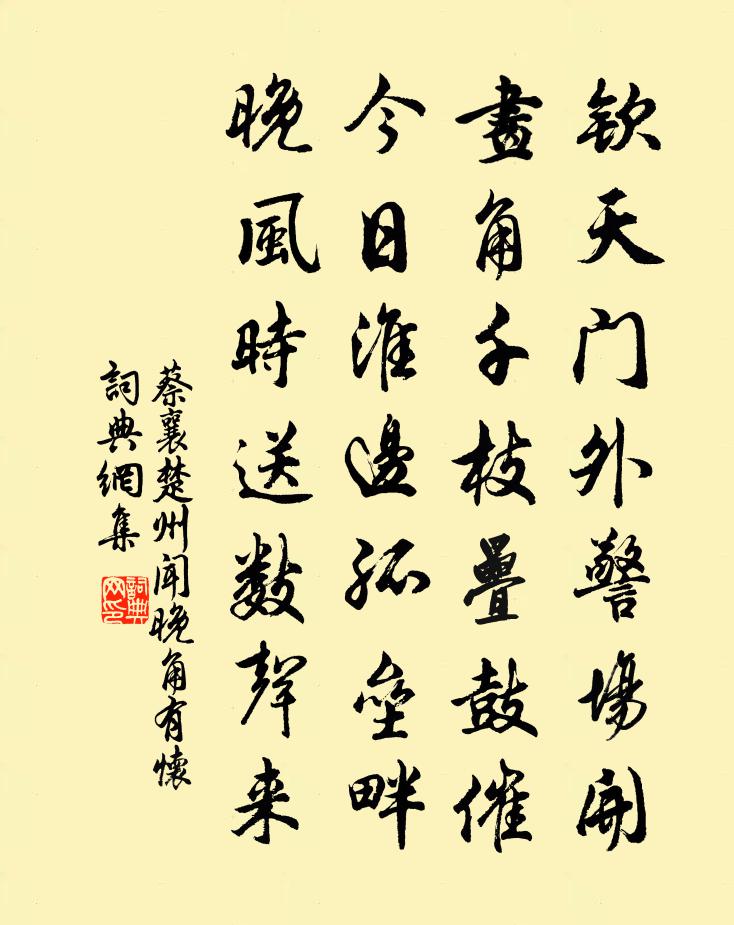 欽天門外警場開
畫角千枝疊鼓催
今日淮邊孤壘畔
晚風時送數聲来
蔡襄楚州聞晚角有懷
詞典網集